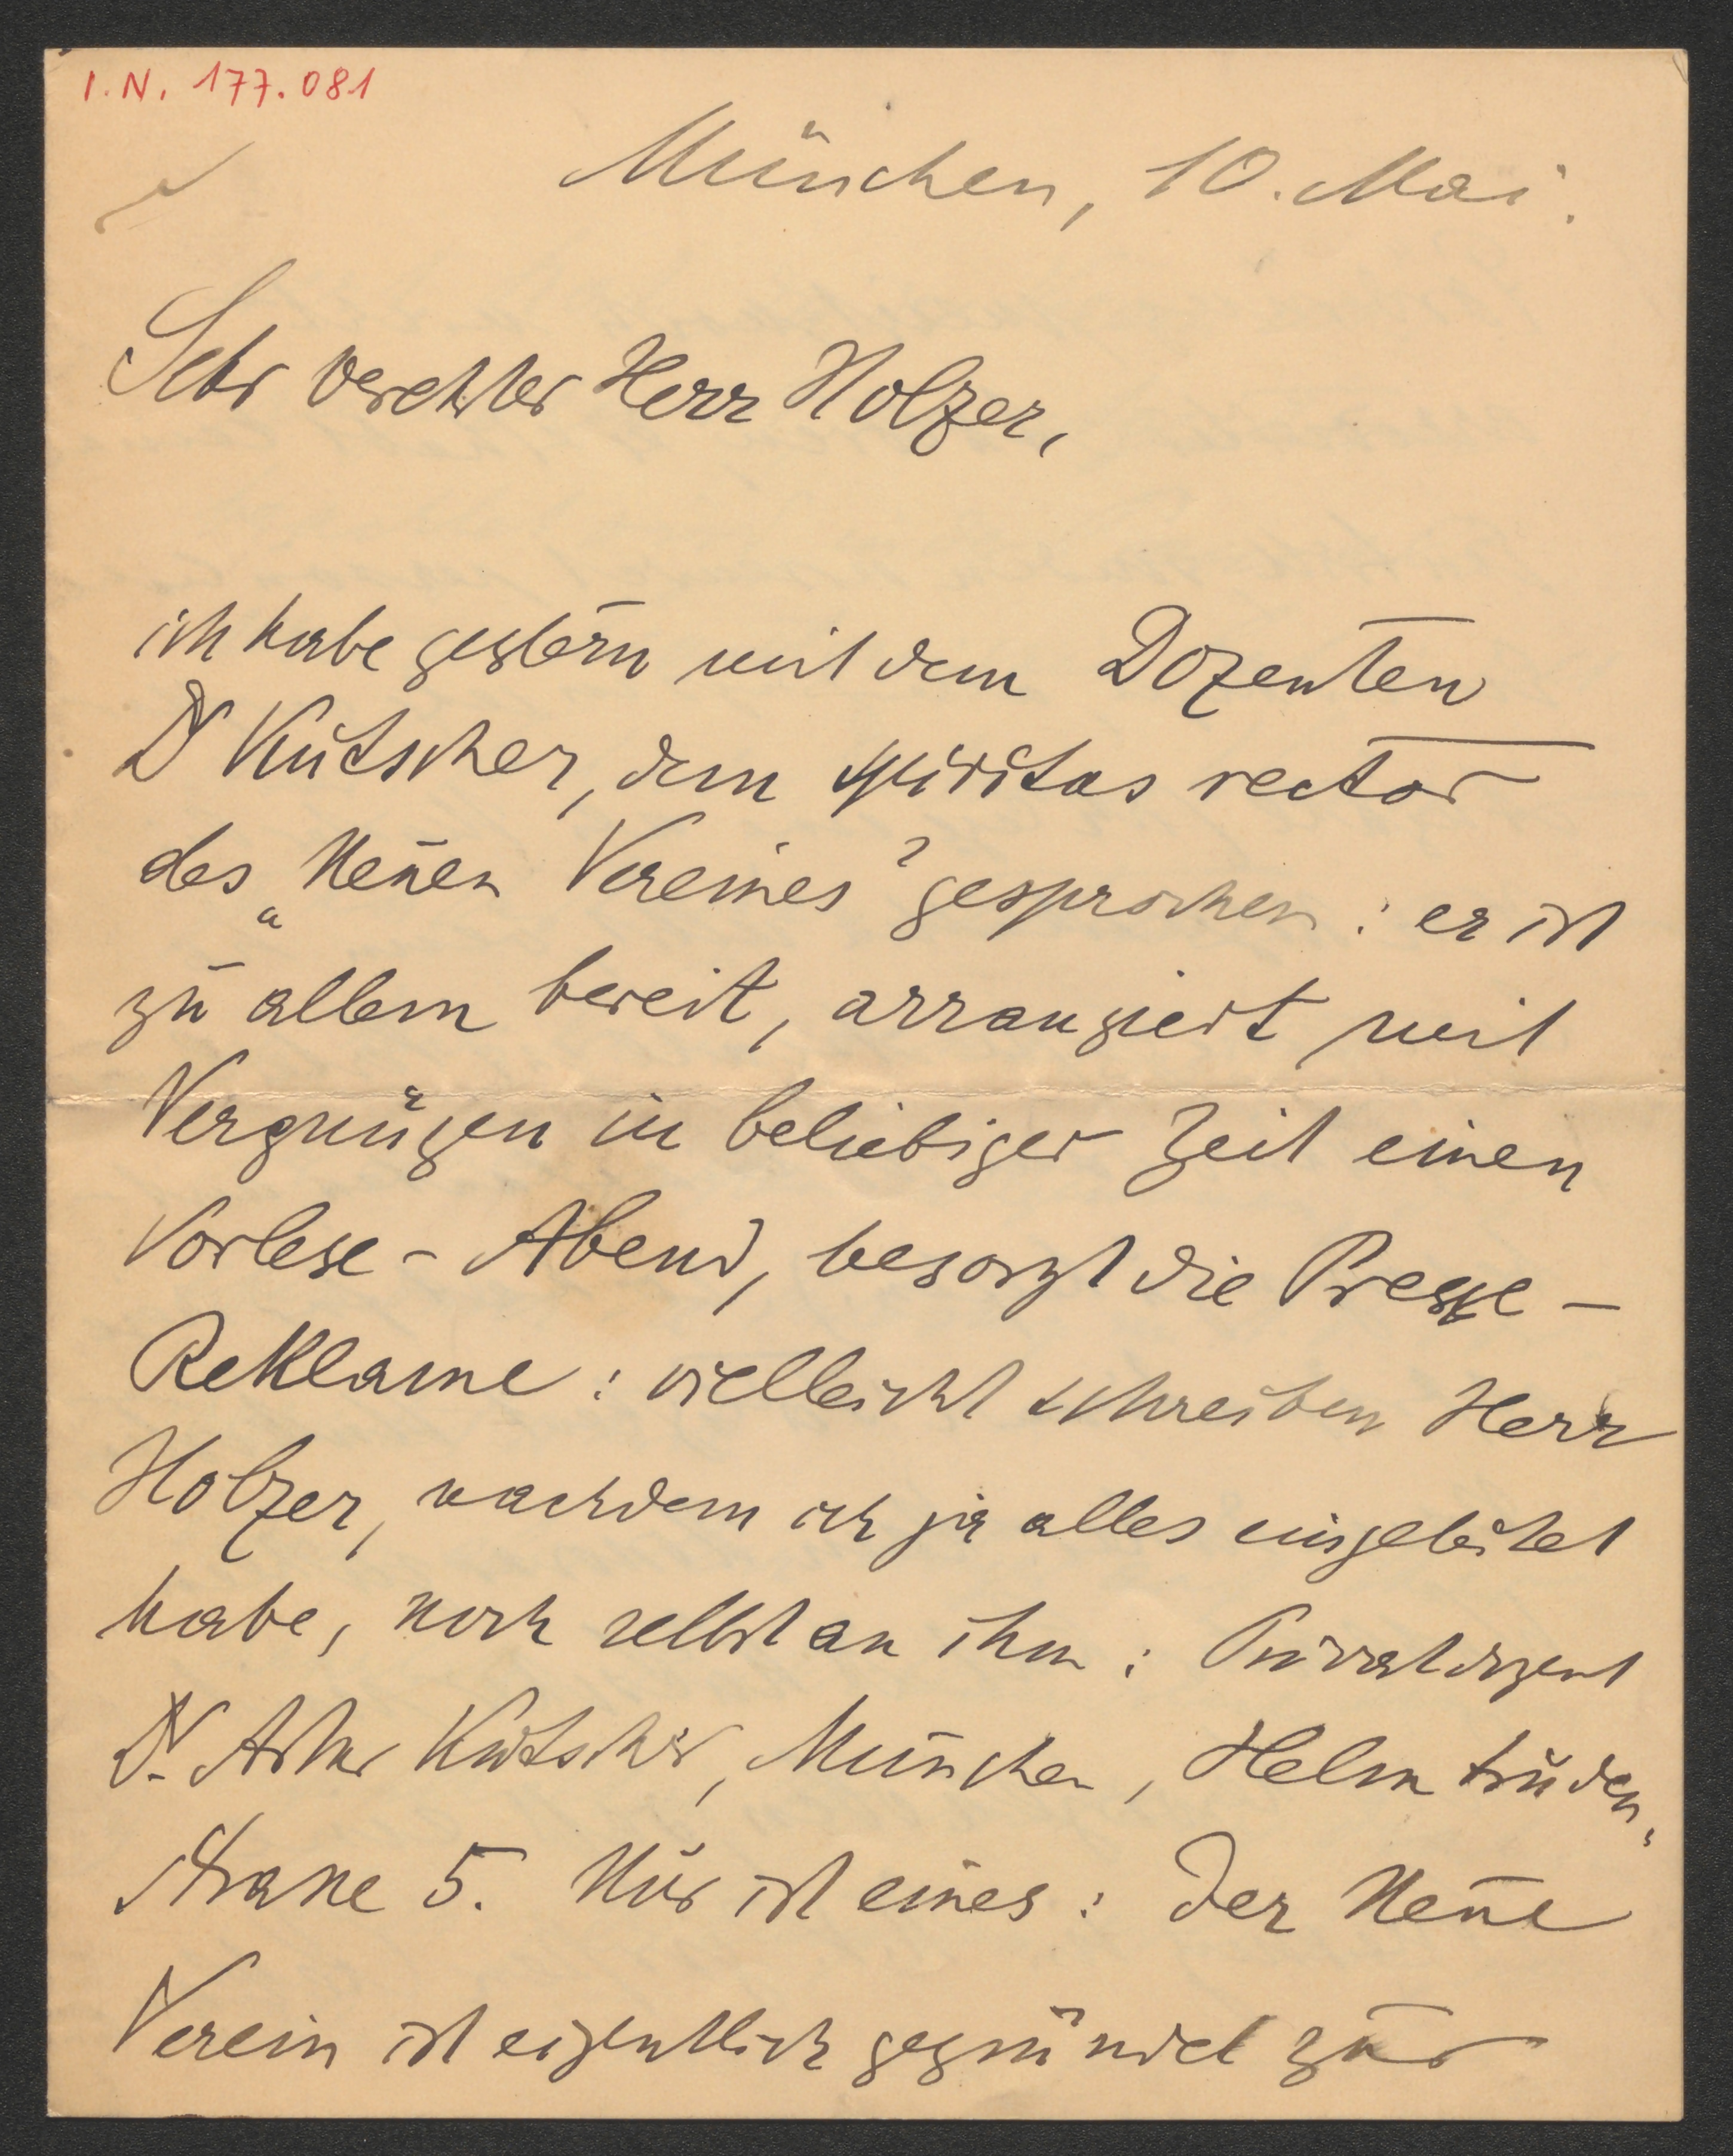 I.N. 177.081
München, 10. Mai.
Sehr verehrter Herr Holzer,
ich habe gestern mit dem Dozenten
Dr Kutscher, dem spiritus rector
des „Neuen Vereines" gesprochen: er ist
zu allem bereit, arrangiert mit
Vergnügen in beliebiger Zeit einen
Vorlese-Abend, besorgt die Presse-
Reklame: vielleicht schreiben Herr
Holzer, nachdem ich ja alles eingeleitet
habe, noch selbst an ihn: Privatdozent
Dr. Artur Kutscher, München, Helmtruden-
strasse 5. Nur ist eines: Der Neue
Verein ist eigentlich gegründet zur